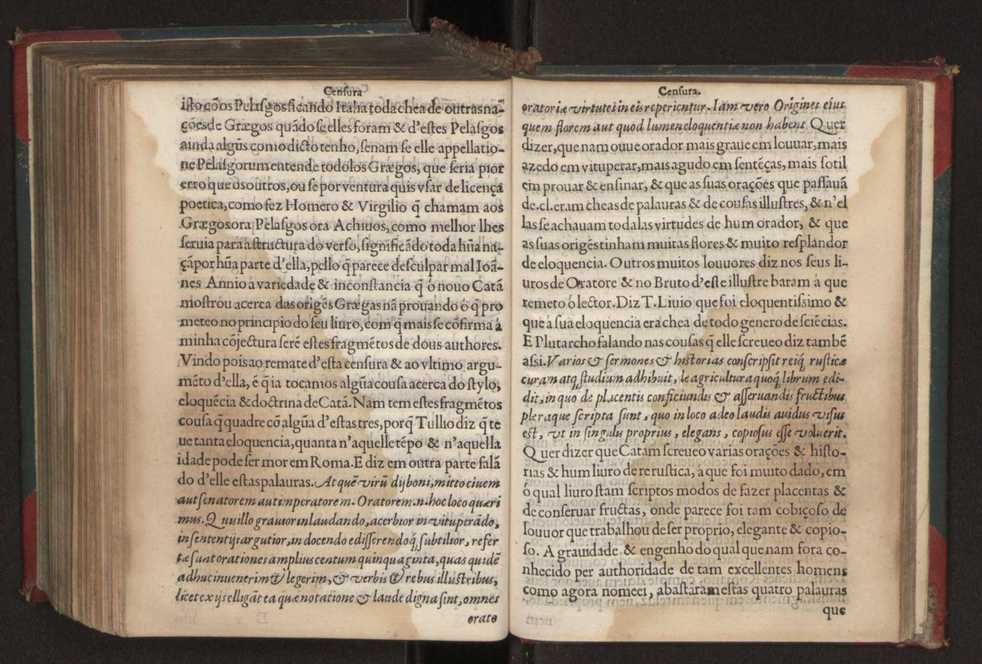 Censura
isto cõ os Pelasgos ficando Italia toda chea de outras na-
ções de Grægos quãdo se elles foram & d'estes Pelasgos
ainda algũs como dicto tenho, senam se elle appellatio-
ne Pelasgorum entende todolos Grægos, que seria pior
erro que os outros, ou se por ventura quis vsar de licença
poetica, como fez Homero & Virgilio q̃ chamam aos
Grægos ora Pelasgos ora Achiuos, como melhor lhes
seruia para a structura do verso, significãdo toda hũa na-
çã por hũa parte d'ella, pello q̃ parece desculpar mal Ioã-
nes Annio a variedade & inconstancia q̃ o nouo Catã
mostrou acerca das origẽs Grægas nã prouando o q̃ pro
meteo no principio do seu liuro, com q̃ mais se cõfirma a
minha cõjectura serẽ estes fragmẽtos de dous authores.
Vindo pois ao remate d'esta censura & ao vltimo argu-
mẽto d'ella, é q̃ ia tocamos algũa cousa acerca do stylo,
eloquẽcia & doctrina de Catã. Nam tem estes fragmẽtos
cousa q̃ quadre cõ algũa d'estas tres, porq̃ Tullio diz q̃ te
ue tanta eloquencia, quanta n'aquelle tẽpo & n'aquella
idade pode ser mor em Roma. E diz em outra parte falã
do d'elle estas palauras. At quẽ virũ dij boni, mitto ciuem
aut senatorem aut inperatorem. Oratorem.n.hoc loco quæri
mus. Quis illo grauior in laudando, acerbior in vituperãdo,
in sententijs argutior, in docendo edisserendoq́ subtilior, refer
tæ sunt orationes amplius centum quinquaginta, quas quidẽ
adhuc inuenerim & legerim, & verbis & rebus illustribus,
licet ex ijs elligãt ea quæ notatione & laude digna sint, omnes
orato
Censura.
oratoriæ virtutes in eis reperientur. Iam vero Origines eius
quem florem aut quod lumen eloquentiæ non habent. Quer
dizer, que nam ouue orador mais graue em louuar, mais
azedo em vituperar, mais agudo em sentẽças, mais sotil
em prouar & ensinar, & que as suas orações que passauã
de.cl. eram cheas de palauras & de cousas illustres, & n'el
las se achauam todalas virtudes de hum orador, & que
as suas origẽs tinham muitas flores & muito resplandor
de eloquencia. Outros muitos louuores diz nos seus li-
uros de Oratore & no Bruto d'este illustre baram a que
remeto ò lector. Diz T. Liuio que foi eloquentissimo &
que a sua eloquencia era chea de todo genero de sciẽcias.
E Plutarcho falando nas cousas q̃ elle screueo diz tambẽ
assi. Varios & sermones & historias conscripsit reiq́; rusticæ
curam atq; studium adhibuit, de agricultura quoq; librum edi-
dit, in quo de placentis conficiundis & asseruandis fructibus
pleraque scripta sunt, quo in loco adeo laudis auidus visus
est, vt in singulis proprius, elegans, copiosus esse voluerit.
Quer dizer que Catam screueo varias orações & histo-
rias & hum liuro de re rustica, a que foi muito dado, em
ò qual liuro stam scriptos modos de fazer placentas &
de conseruar fructas, onde parece foi tam cobiçoso de
louuor que trabalhou de ser proprio, elegante & copio-
so. A grauidade & engenho do qual que nam fora co-
nhecido per authoridade de tam excellentes homens
como agora nomeei, abastaram estas quatro palauras
que